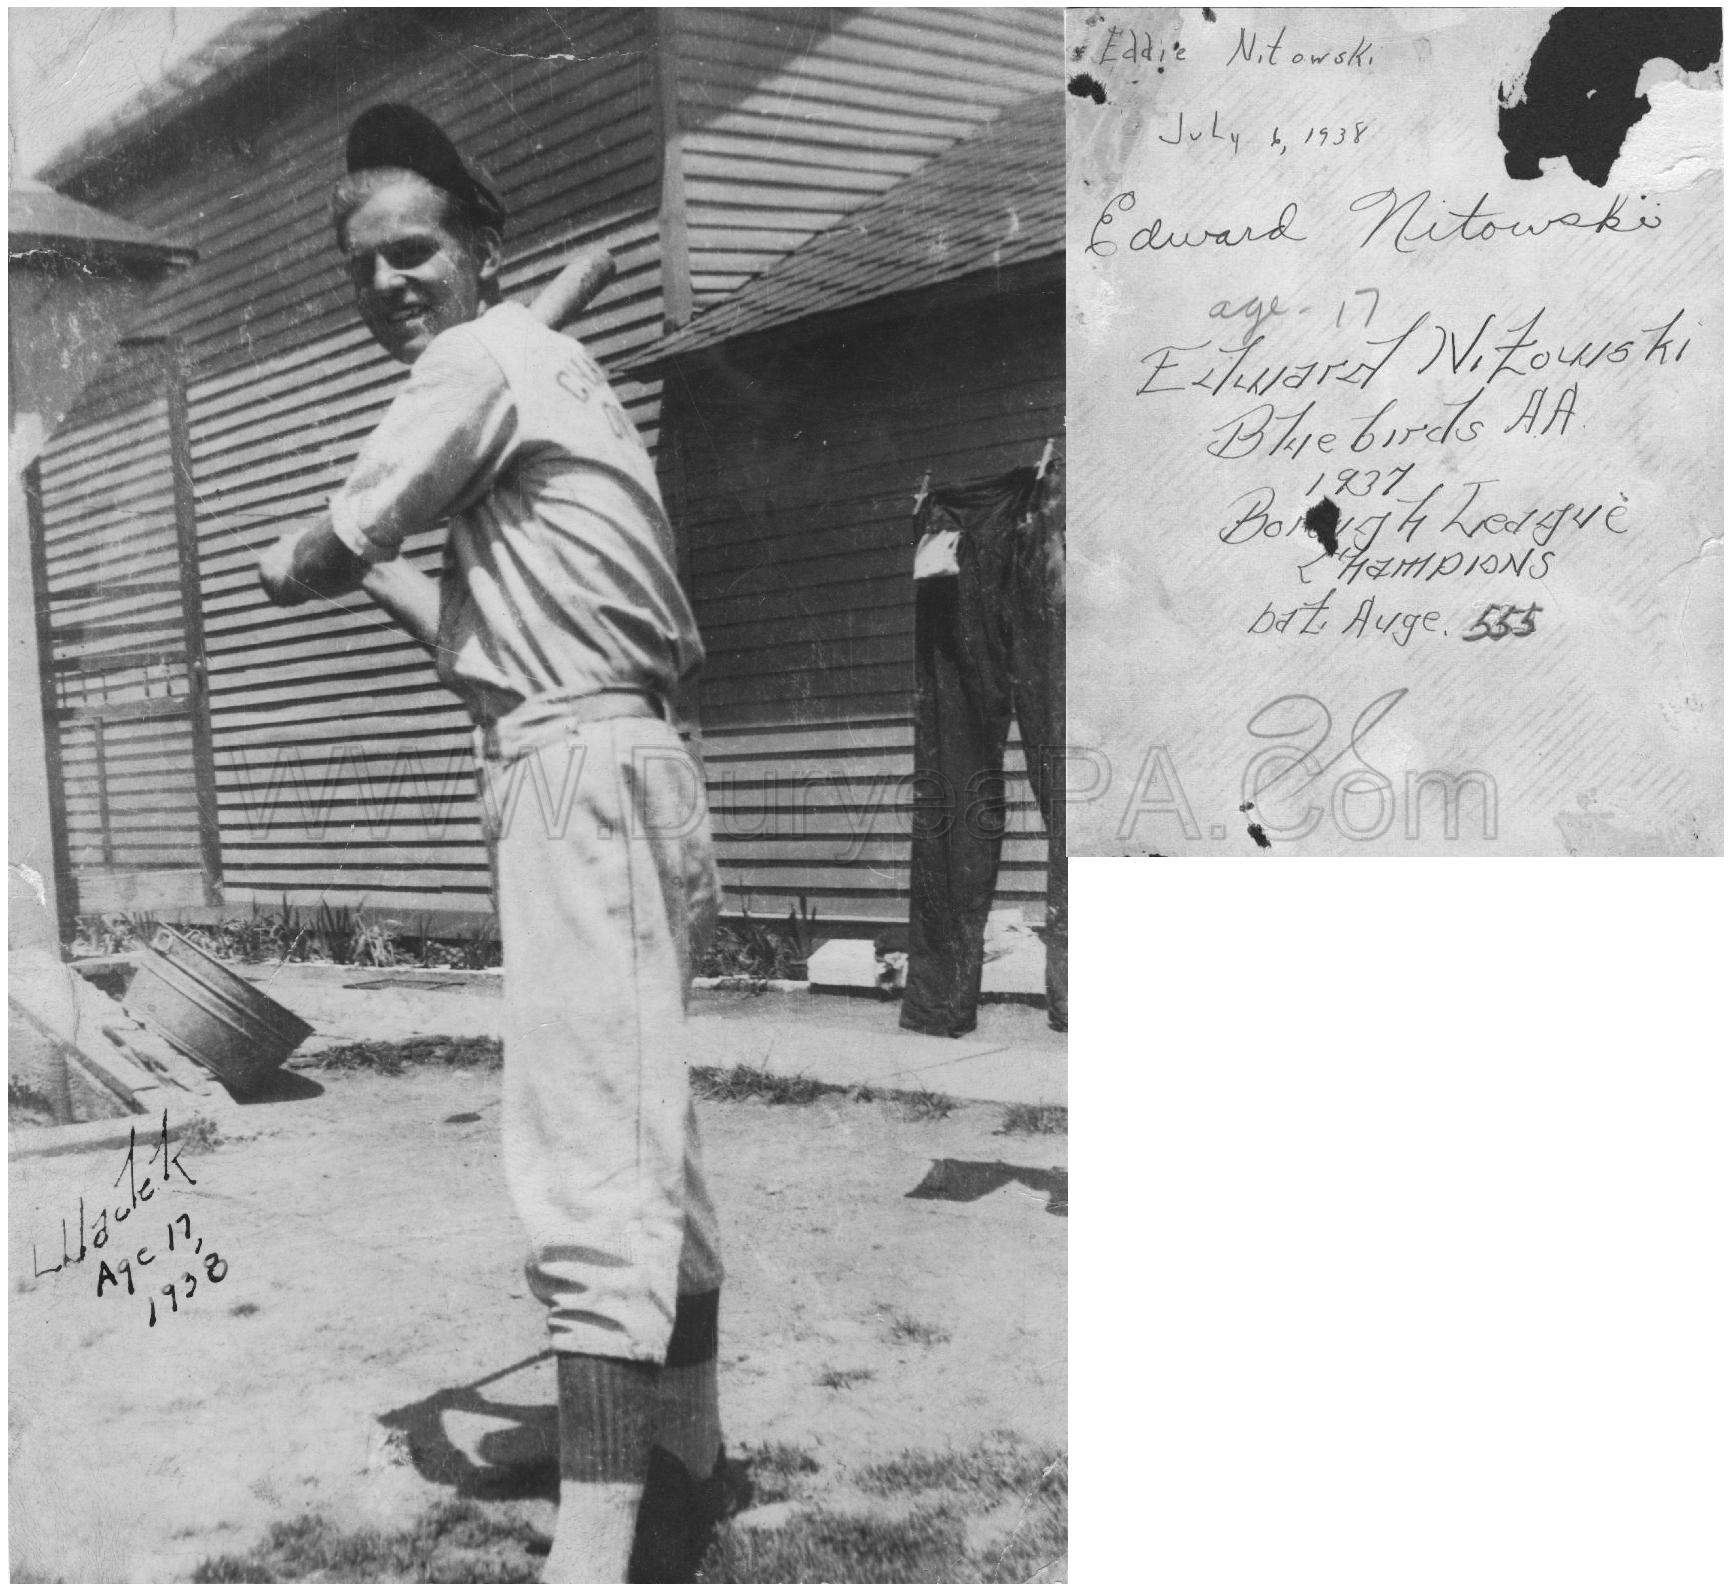 Wadek
Age 17,
1938
Eddie Nitowski
July 6, 1938
Edward Nitowski
age - 17
Edward Nitowski
Bluebirds AA
1937
Borough League
CHAMPIONS
bat. Avge. 555
WWW.DuryeaPA.Com